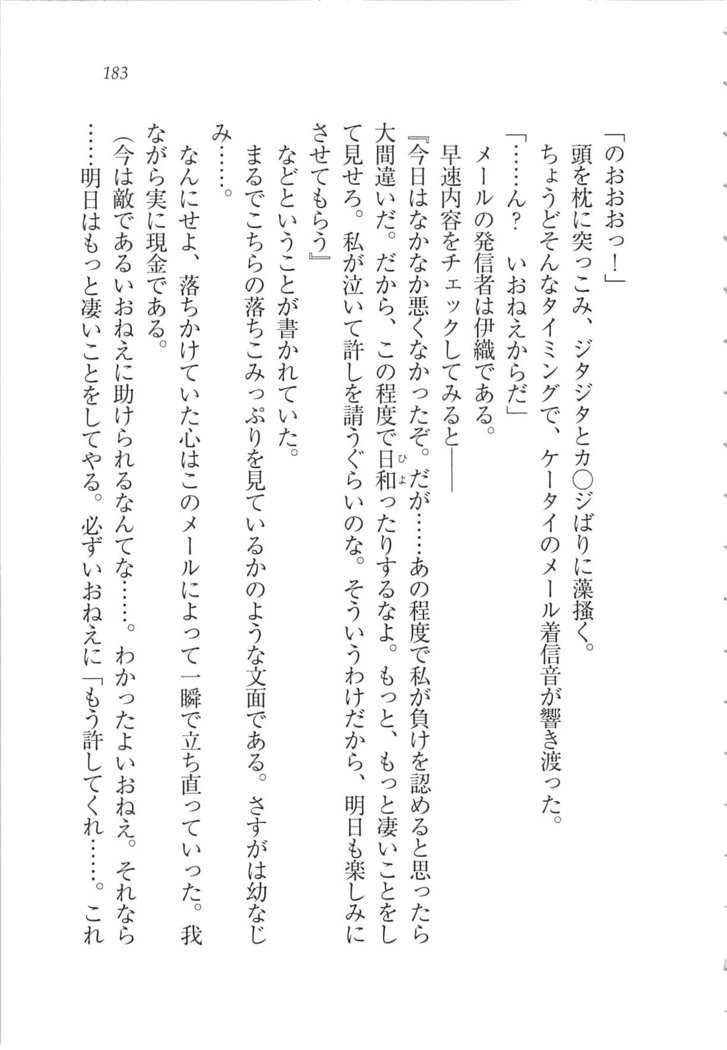 183
「のおおおっ！」
頭を枕に突っこみ、ジタジタとカ〇ジばりに藻掻く。
ちょうどそんなタイミングで、ケータイのメール着信音が響き渡った。
「……ん？　いおねえからだ」
メールの発信者は伊織である。
早速内容をチェックしてみると――
『今日はなかなか悪くなかったぞ。だが……あの程度で私が負けを認めると思ったら
大間違いだ。だから、この程度で日和ったりするなよ。もっと、もっと凄いことをし
ひよ
て見せろ。私が泣いて許しを請うぐらいのな。そういうわけだから、明日も楽しみに
させてもらう』
などということが書かれていた。
まるでこちらの落ちこみっぷりを見ているかのような文面である。さすがは幼なじ
み……。
なんにせよ、落ちかけていた心はこのメールによって一瞬で立ち直っていった。我
ながら実に現金である。
（今は敵であるいおねえに助けられるなんてな……。わかったよいおねえ。それなら
……明日はもっと凄いことをしてやる。必ずいおねえに「もう許してくれ……。これ